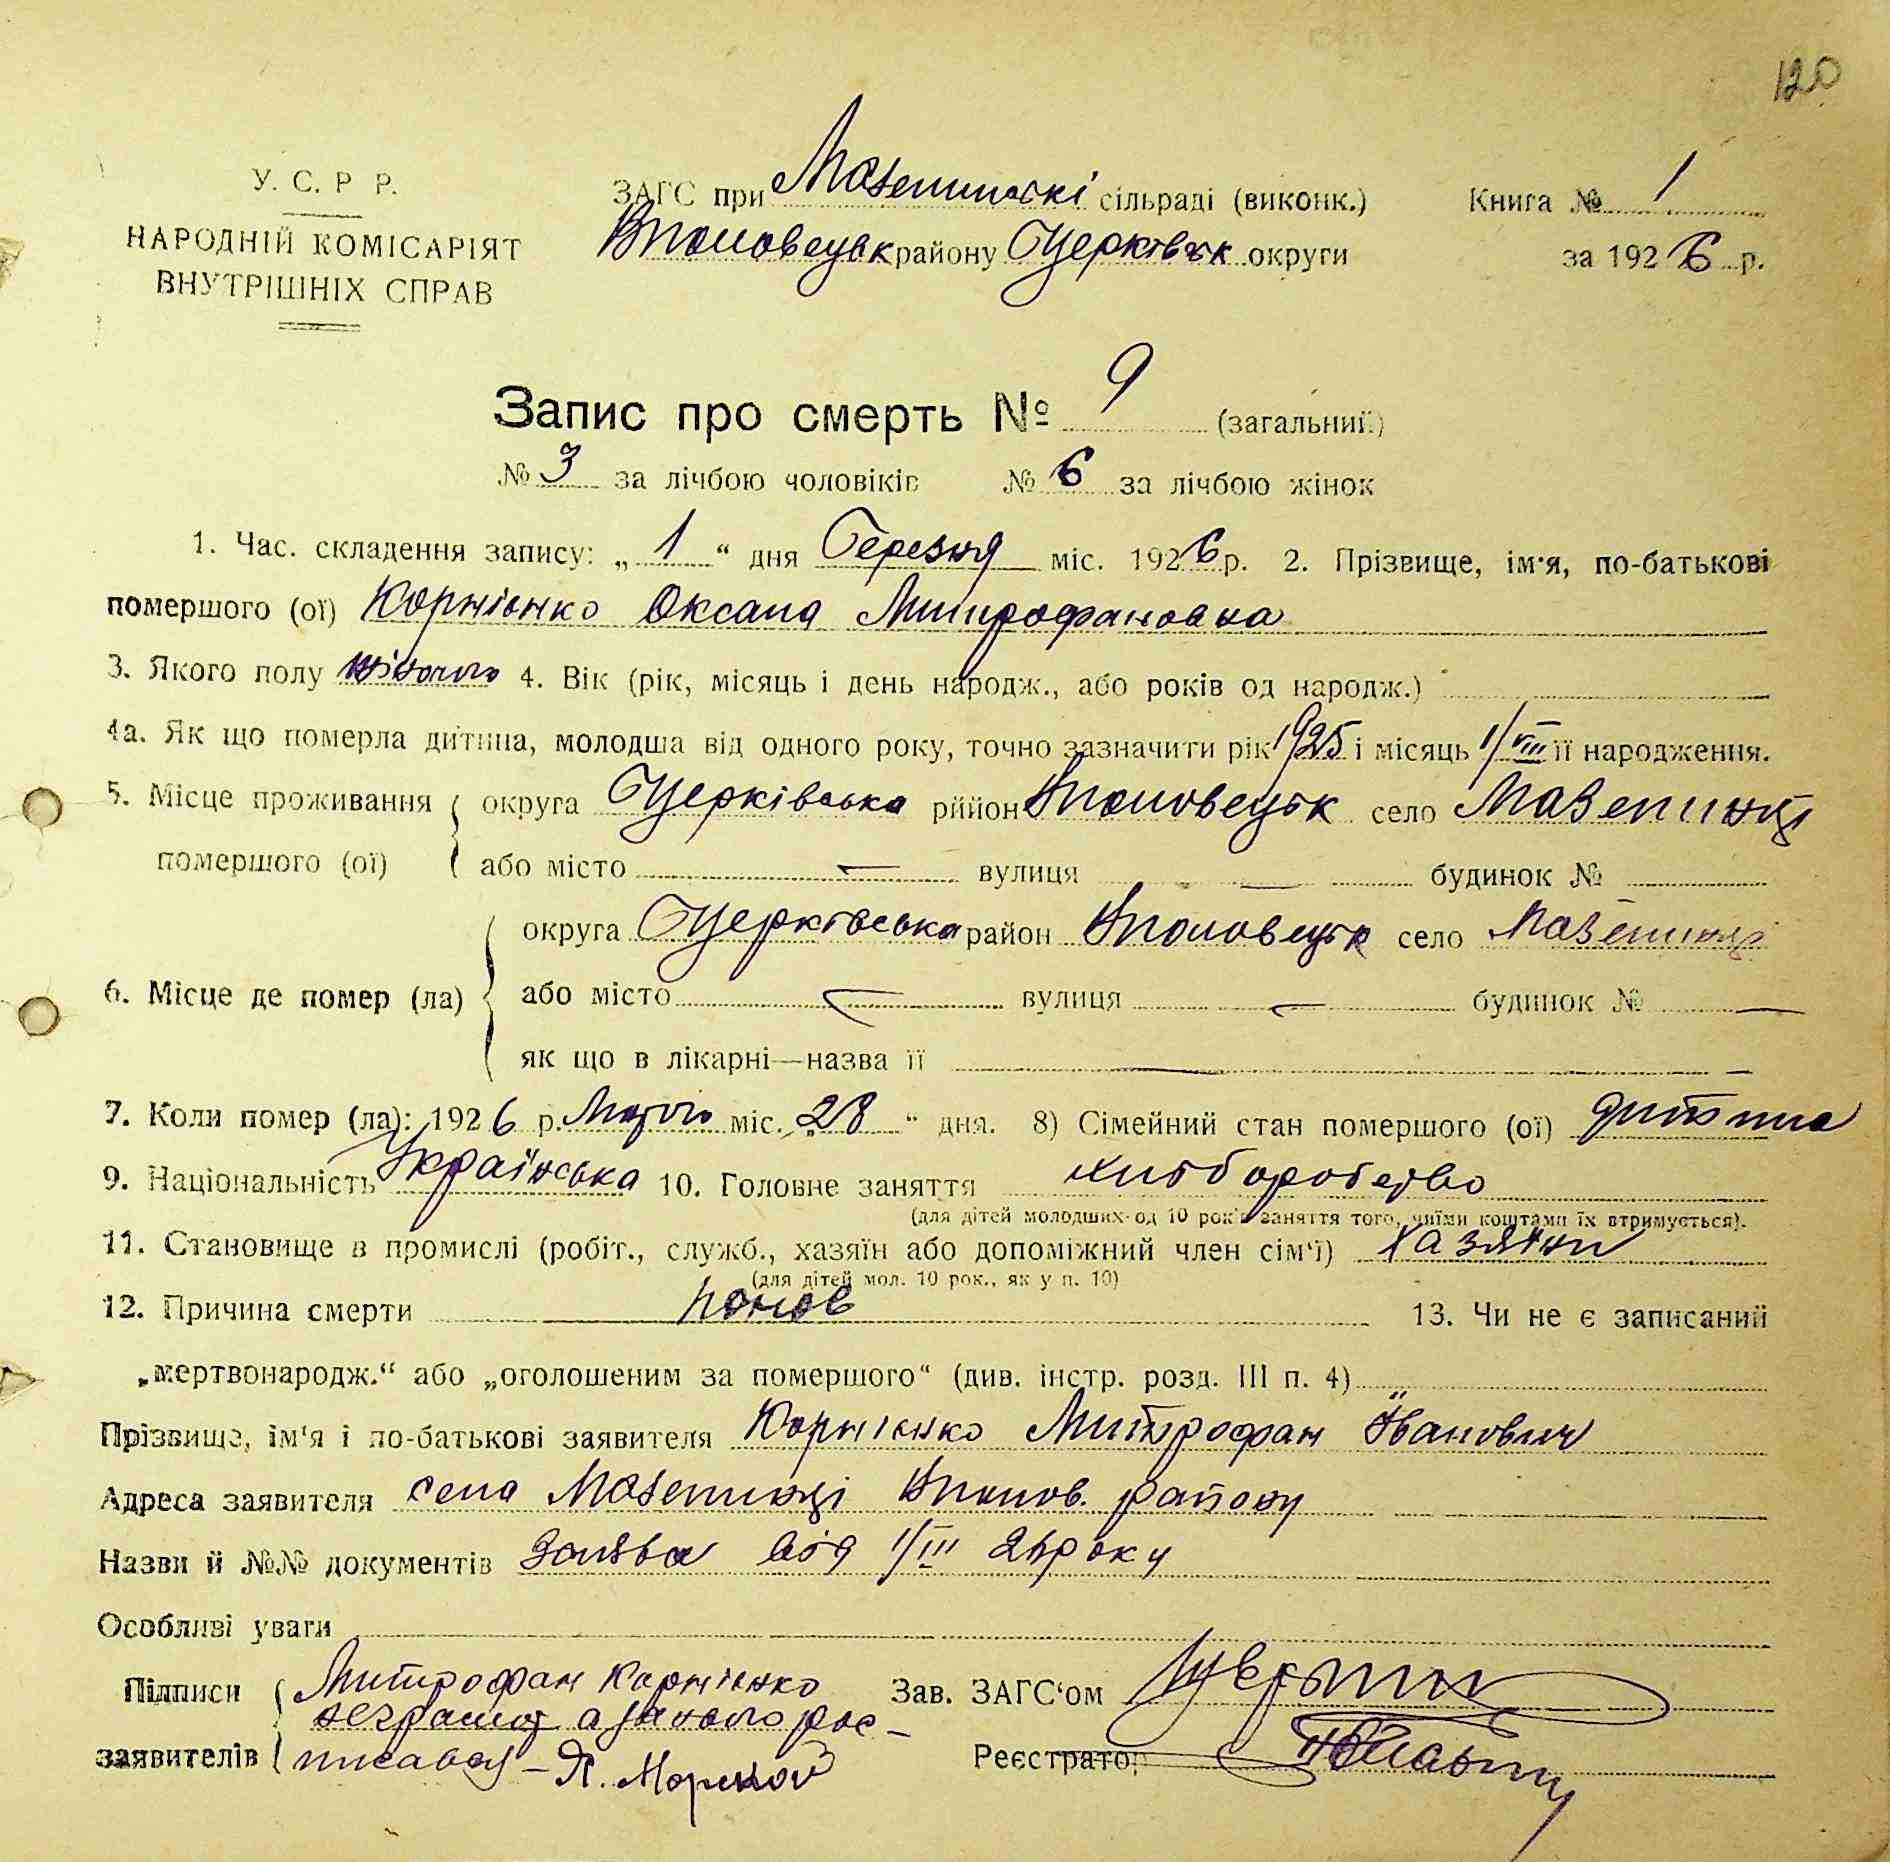 120
У. С. Р Р.
НАРОДНІЙ КОМІСАРІЯТ
ВНУТРІШНІХ СПРАВ
ЗАГС при Мазепинскі сільраді (виконк.)
району Бцерківськ округи
Книга № 1
за 1926 р.
Запис про смерть № 9 (загальний)
№ 3 за лічбою чоловіків № 6 за лічбою жінок
1. Час. складення запису: „ 1 “ дня Березня міс. 1926 р. 2. Прізвище, ім'я, по-батькові
помершого (ої) Корнієнко Оксана Митрофановна
3. Якого полу жіночого 4. Вік (рік, місяць і день народж., або років од народж.)
4а. Як що померла дитина, молодша від одного року, точно зазначити рік 1925 і місяць 1/VIII її народження.
5. Місце проживання помершого (ої) округа Бцерківська район село Мазепинці
або місто — вулиця — будинок №
6. Місце де помер (ла) округа Бцерківська район село Мазепинці
або місто — вулиця — будинок № —
як що в лікарні—назва її —
7. Коли помер (ла): 1926 р. Лютого міс. „28“ дня. 8) Сімейний стан помершого (ої) дитина
9. Національність Українська 10. Головне заняття хліборобство
(для дітей молодших од 10 рок'в заняття того, чиїми коштами їх втримується).
11. Становище в промислі (робіт., служб., хазяїн або допоміжний член сім'ї) хазяїни
(для дітей мол. 10 рок., як у п. 10)
12. Причина смерти 13. Чи не є записаний
„мертвонародж.“ або „оголошеним за помершого“ (див. інстр. розд. III п. 4)
Прізвище, ім'я і по-батькові заявителя Корнієнко Митрофан Іванович
Адреса заявителя села Мазепинці району
Назви й №№ документів Заява від 1/III 26 року
Особливі уваги
Підписи заявителів Митрофан Корнієнко
неграмот а за нього рос-
писався —
Зав. ЗАГС'ом
Реєстратор